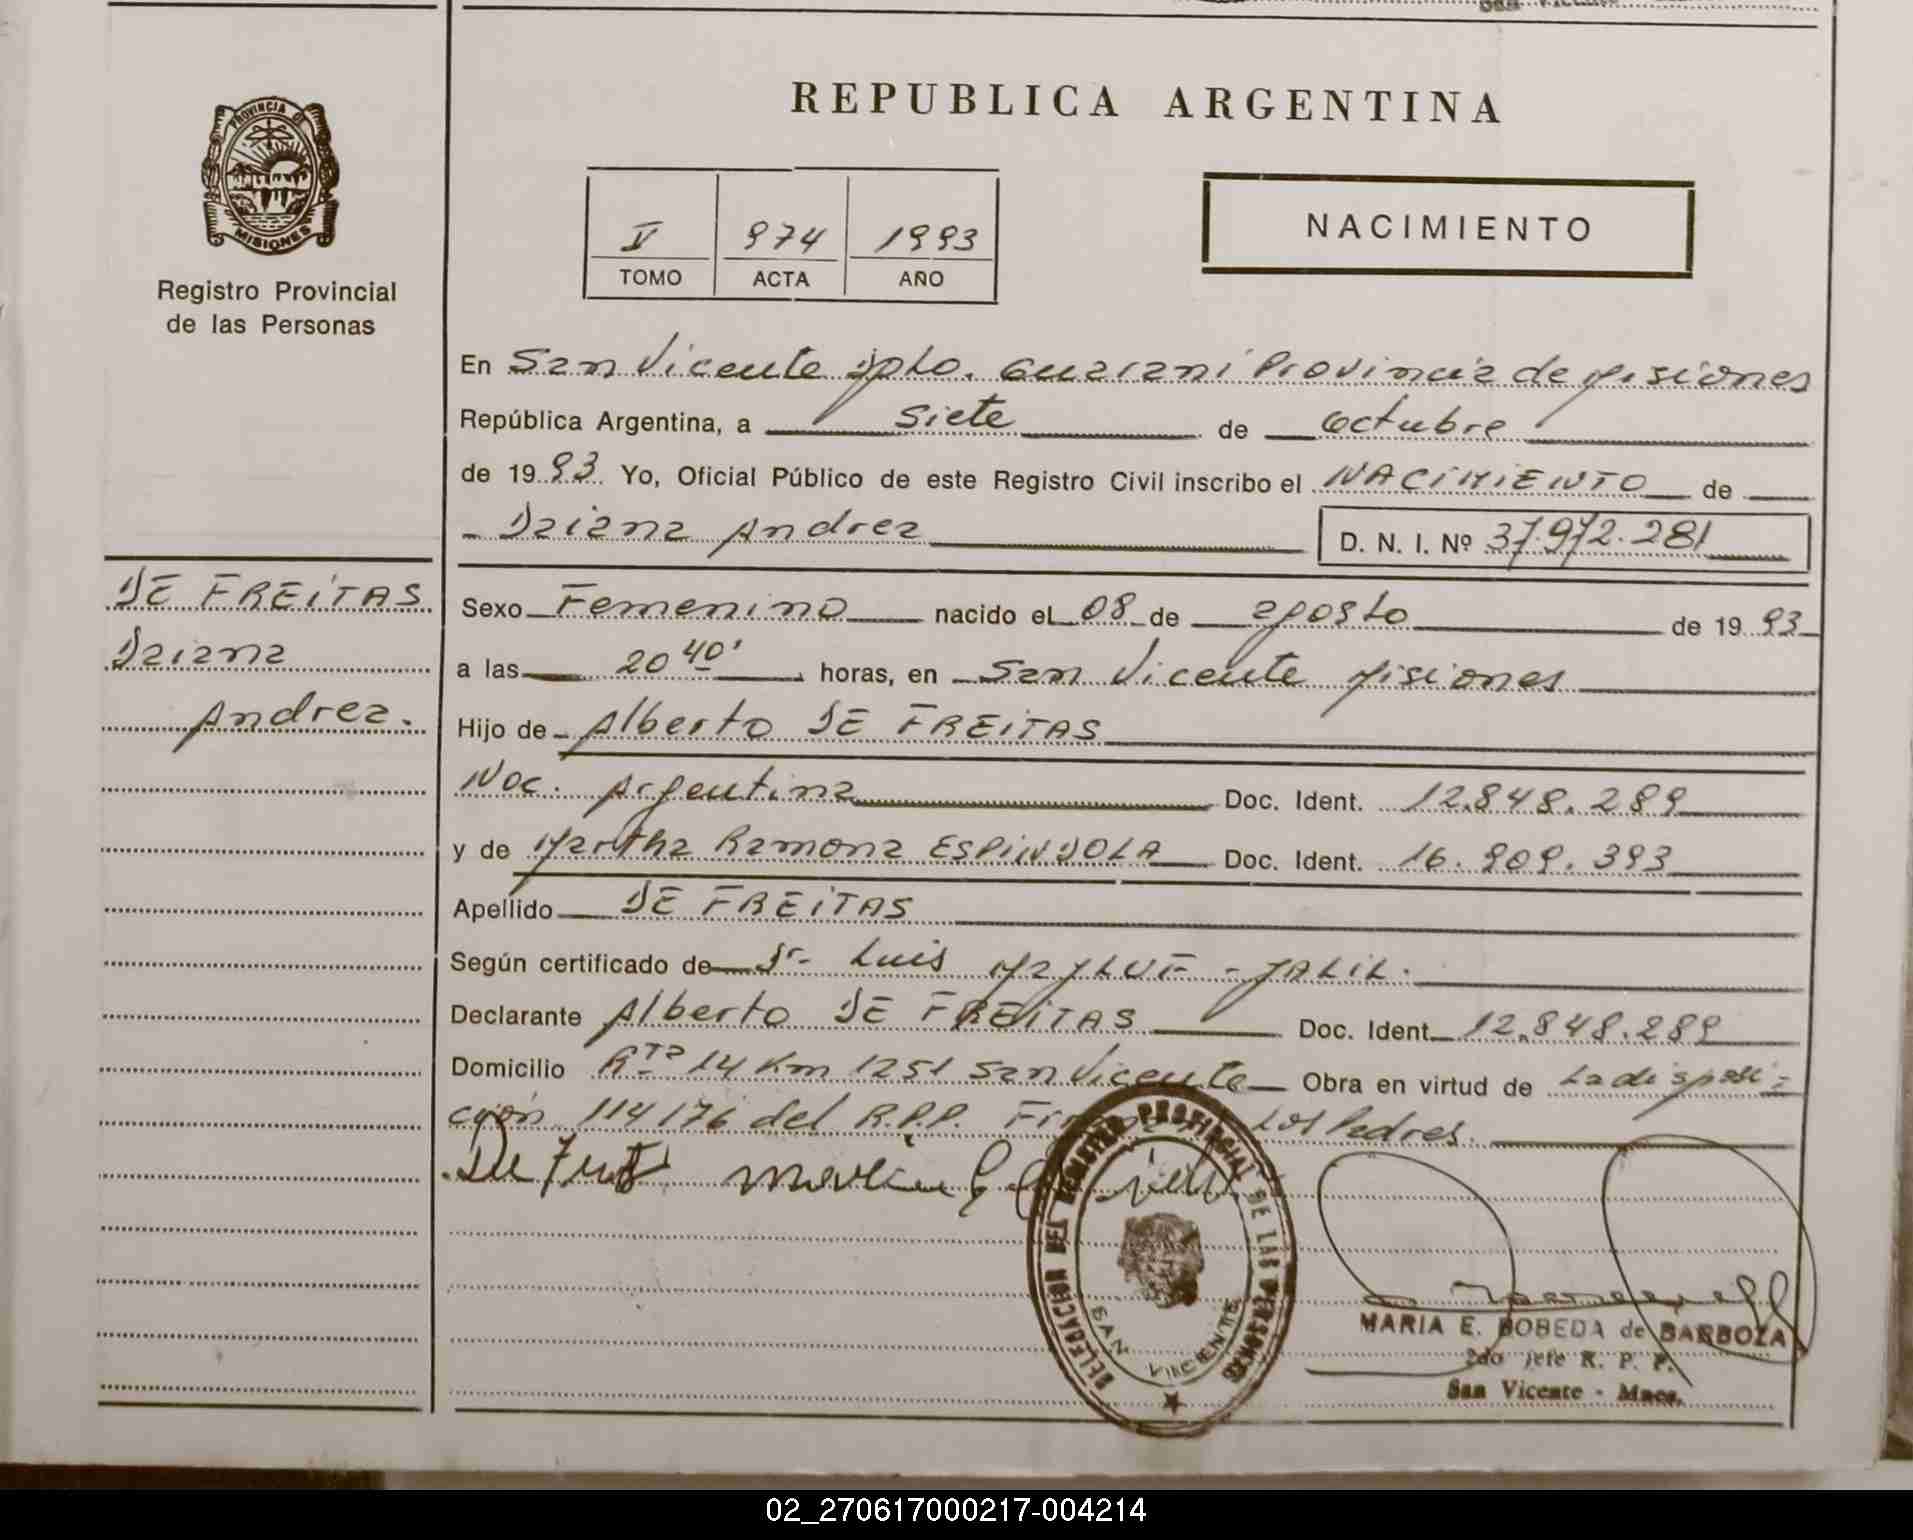 REPUBLICA ARGENTINA
PROVINCIA DE
MISIONES
Registro Provincial
de las Personas
V 974 1993
TOMO ACTA AÑO
NACIMIENTO
En San Vicente Dpto. Guarani Provincia de Misiones
República Argentina, a siete de octubre
de 1993. Yo, Oficial Público de este Registro Civil inscribo el NACIMIENTO de
Daiana Andrea D. N. I. Nº 37.972.281
DE FREITAS
Daiana
Andrea.
Sexo Femenino nacido el 08 de agosto de 1993
a las 20 40' horas, en San Vicente Misiones
Hijo de Alberto DE FREITAS
Nac. Argentina Doc. Ident. 12.848.289
y de Martha Ramona ESPINDOLA Doc. Ident. 16.909.393
Apellido DE FREITAS
Según certificado de Dr. Luis JALIL.
Declarante Alberto DE FREITAS Doc. Ident. 12.848.289
Domicilio Rta 14 Km 1251 San Vicente Obra en virtud de La disposi-
ción 114/76 del R.P.P. Los Padres.
DELEGACION DEL REGISTRO PROVINCIAL DE LAS PERSONAS
SAN VICENTE
MARIA E. BOBEDA de BARBOZA
2do Jefe R. P. P.
San Vicente - Mnes.
02_270617000217-004214